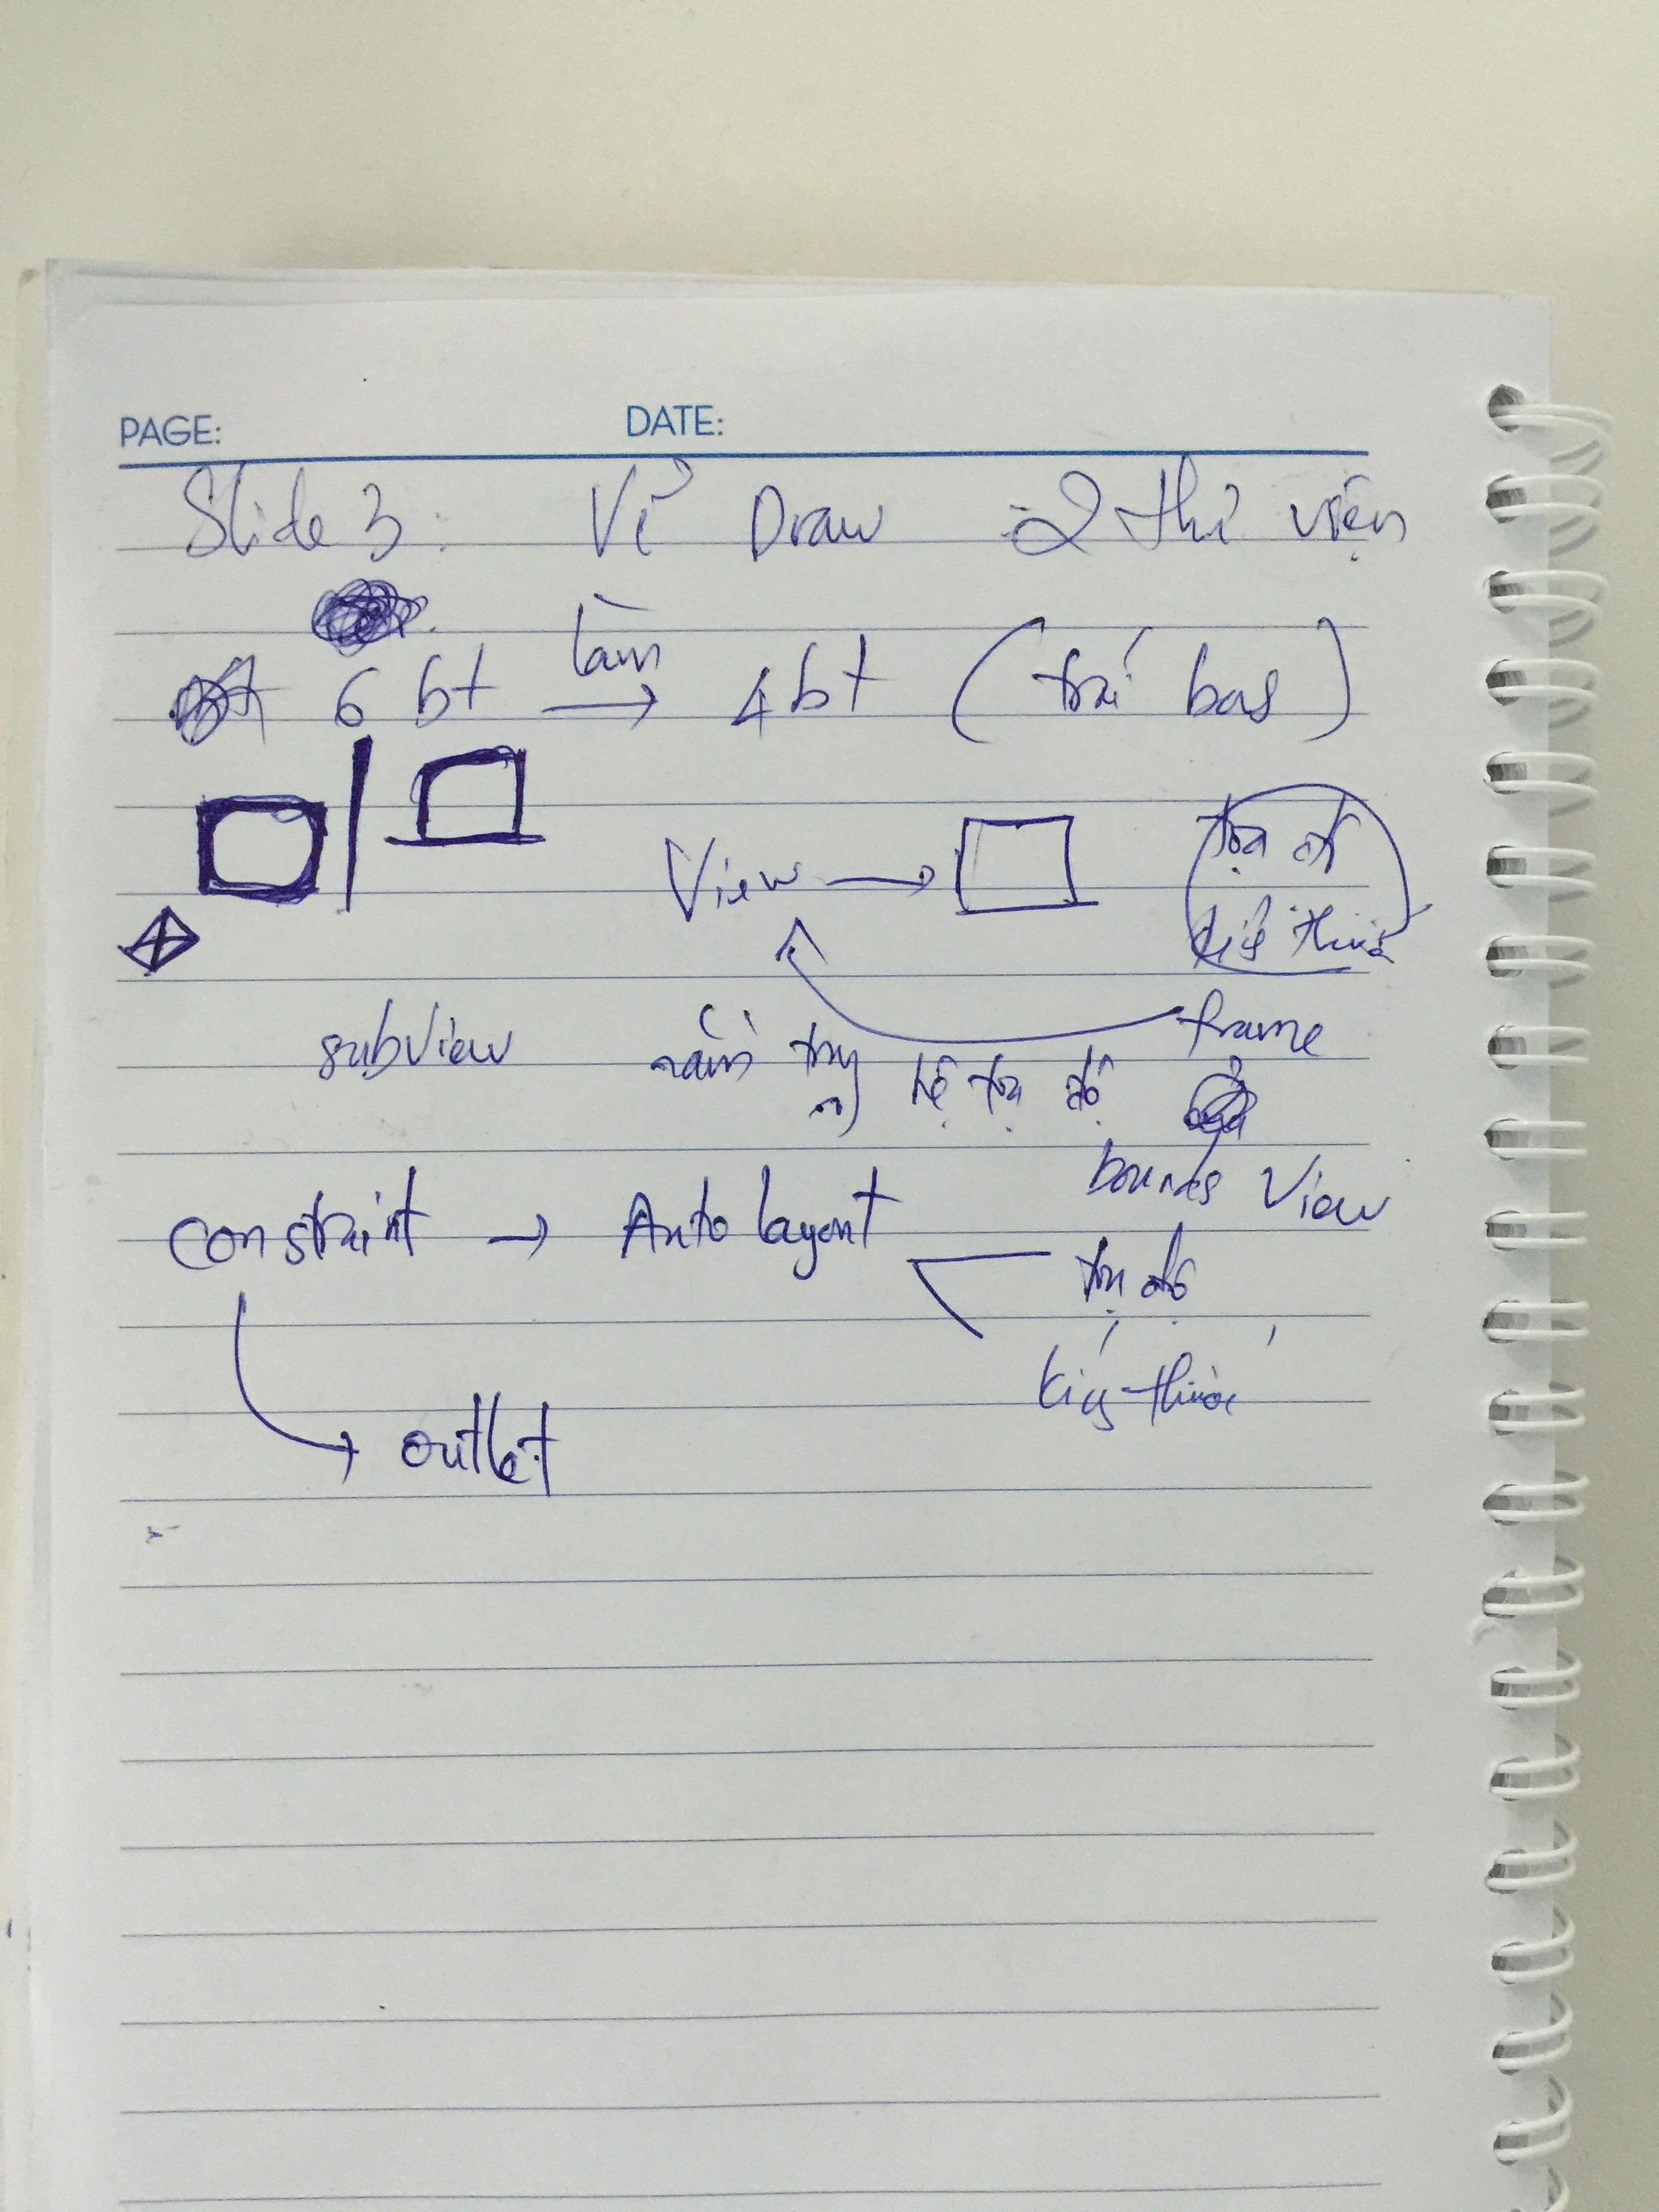 PAGE: DATE:
Slide 3: Vẽ Draw 2 thư viện
làm
6 bt → 4 bt (
View → tọa độ
frame
subview nằm trg hệ tọa độ
bounds View
constraint → Auto layout
tọa độ
kích thước
outlet